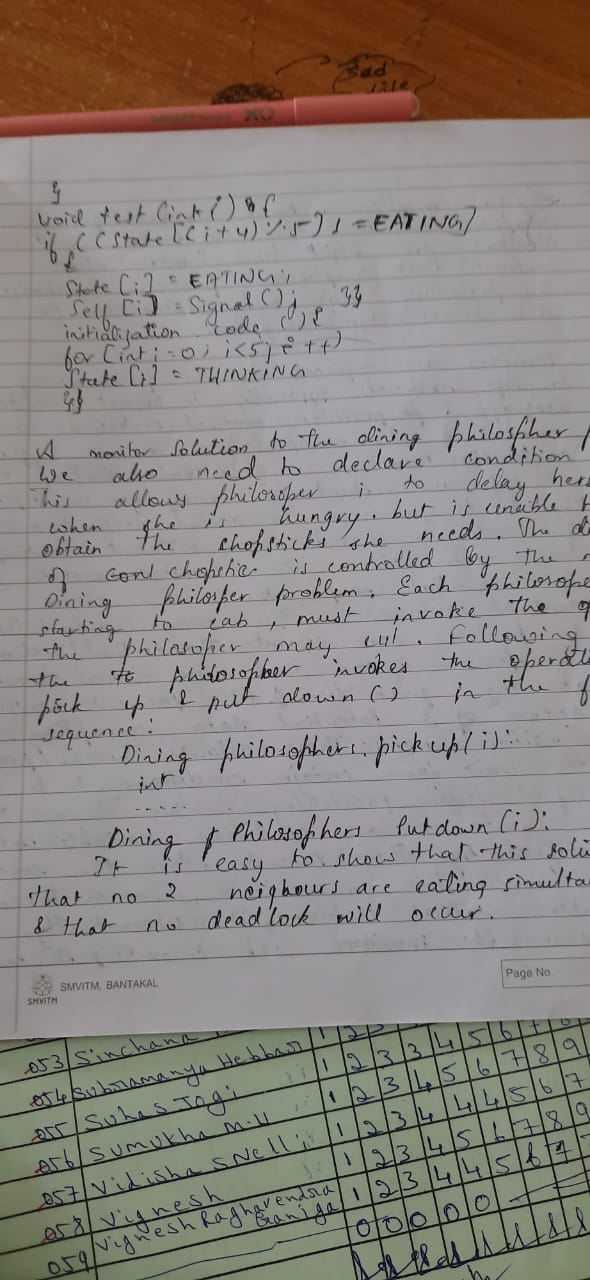 Sad
life
}
void test (int i) {
if ((State [(i+4) % 5] ! = EATING)
{
State [i] = EATING;
Self [i] = Signal ();   }}
initialization code () {
for (int i = 0; i<5; i++)
State [i] = THINKING
}}
A monitor solution to the dining philospher
We also need to declare condition
This allows philosoper i to delay hers
when she is hungry. but is unable
obtain the chopsticks she needs. The
of conl chopstic is controlled by the
Dining philospher problem. Each philosophe
starting to eab, must invoke the
the philosopher may eul. Following
the philosopher invokes the operati
pick up & put down () in the
sequence:
Dining philosophers. pick up (i):
int
.....
Dining Philosophers Put down (i):
It is easy to show that this solu
that no 2 neighbours are eating simulta
& that no deadlock will occur.
SMVITM, BANTAKAL
SMVITM
Page No.
053 Sinchana
054 Subramanya Hebbar 1 2 3 3 4 5 6 7
055 Suhas Jogi 1 2 3 4 5 6 7 8 9
056 Sumukha M.U 1 2 3 4 4 4 5 6 7
057 Vidisha Snell 1 2 3 4 5 6 7 8 9
058 Vignesh 1 2 3 4 4 5 6 7
059 Vignesh Raghavendra Ganiga 0 0 0 0 0